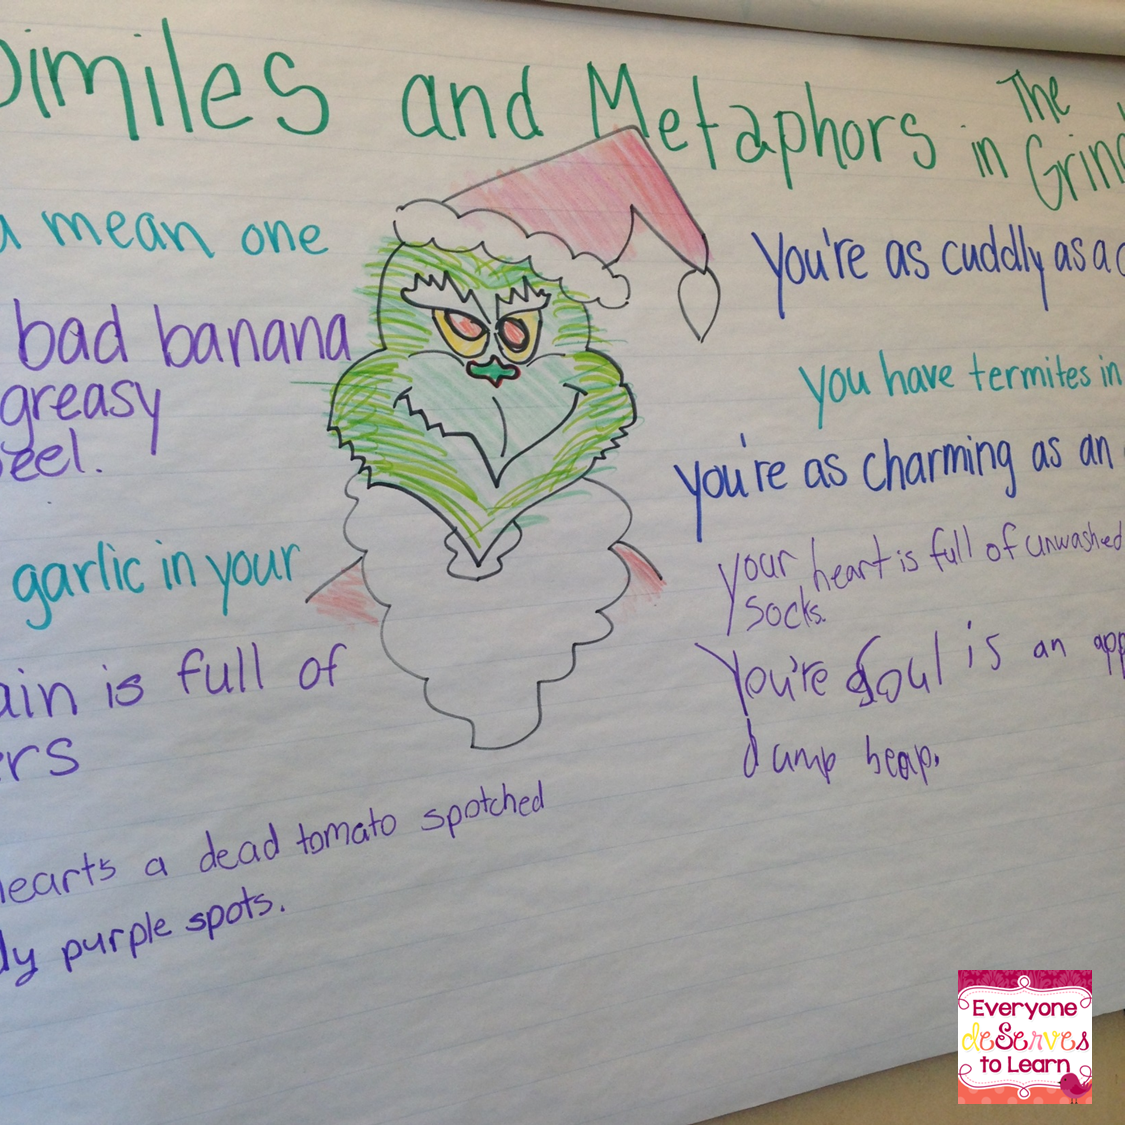 Similes and Metaphors in The Grin
a mean one
bad banana
greasy
eel.
garlic in your
ain is full of
ers
hearts a dead tomato spotched
dly purple spots.
You're as cuddly as a c
you have termites in
you're as charming as an
your heart is full of unwashed
socks.
You're soul is an app
dump heap.
Everyone
deserves
to Learn